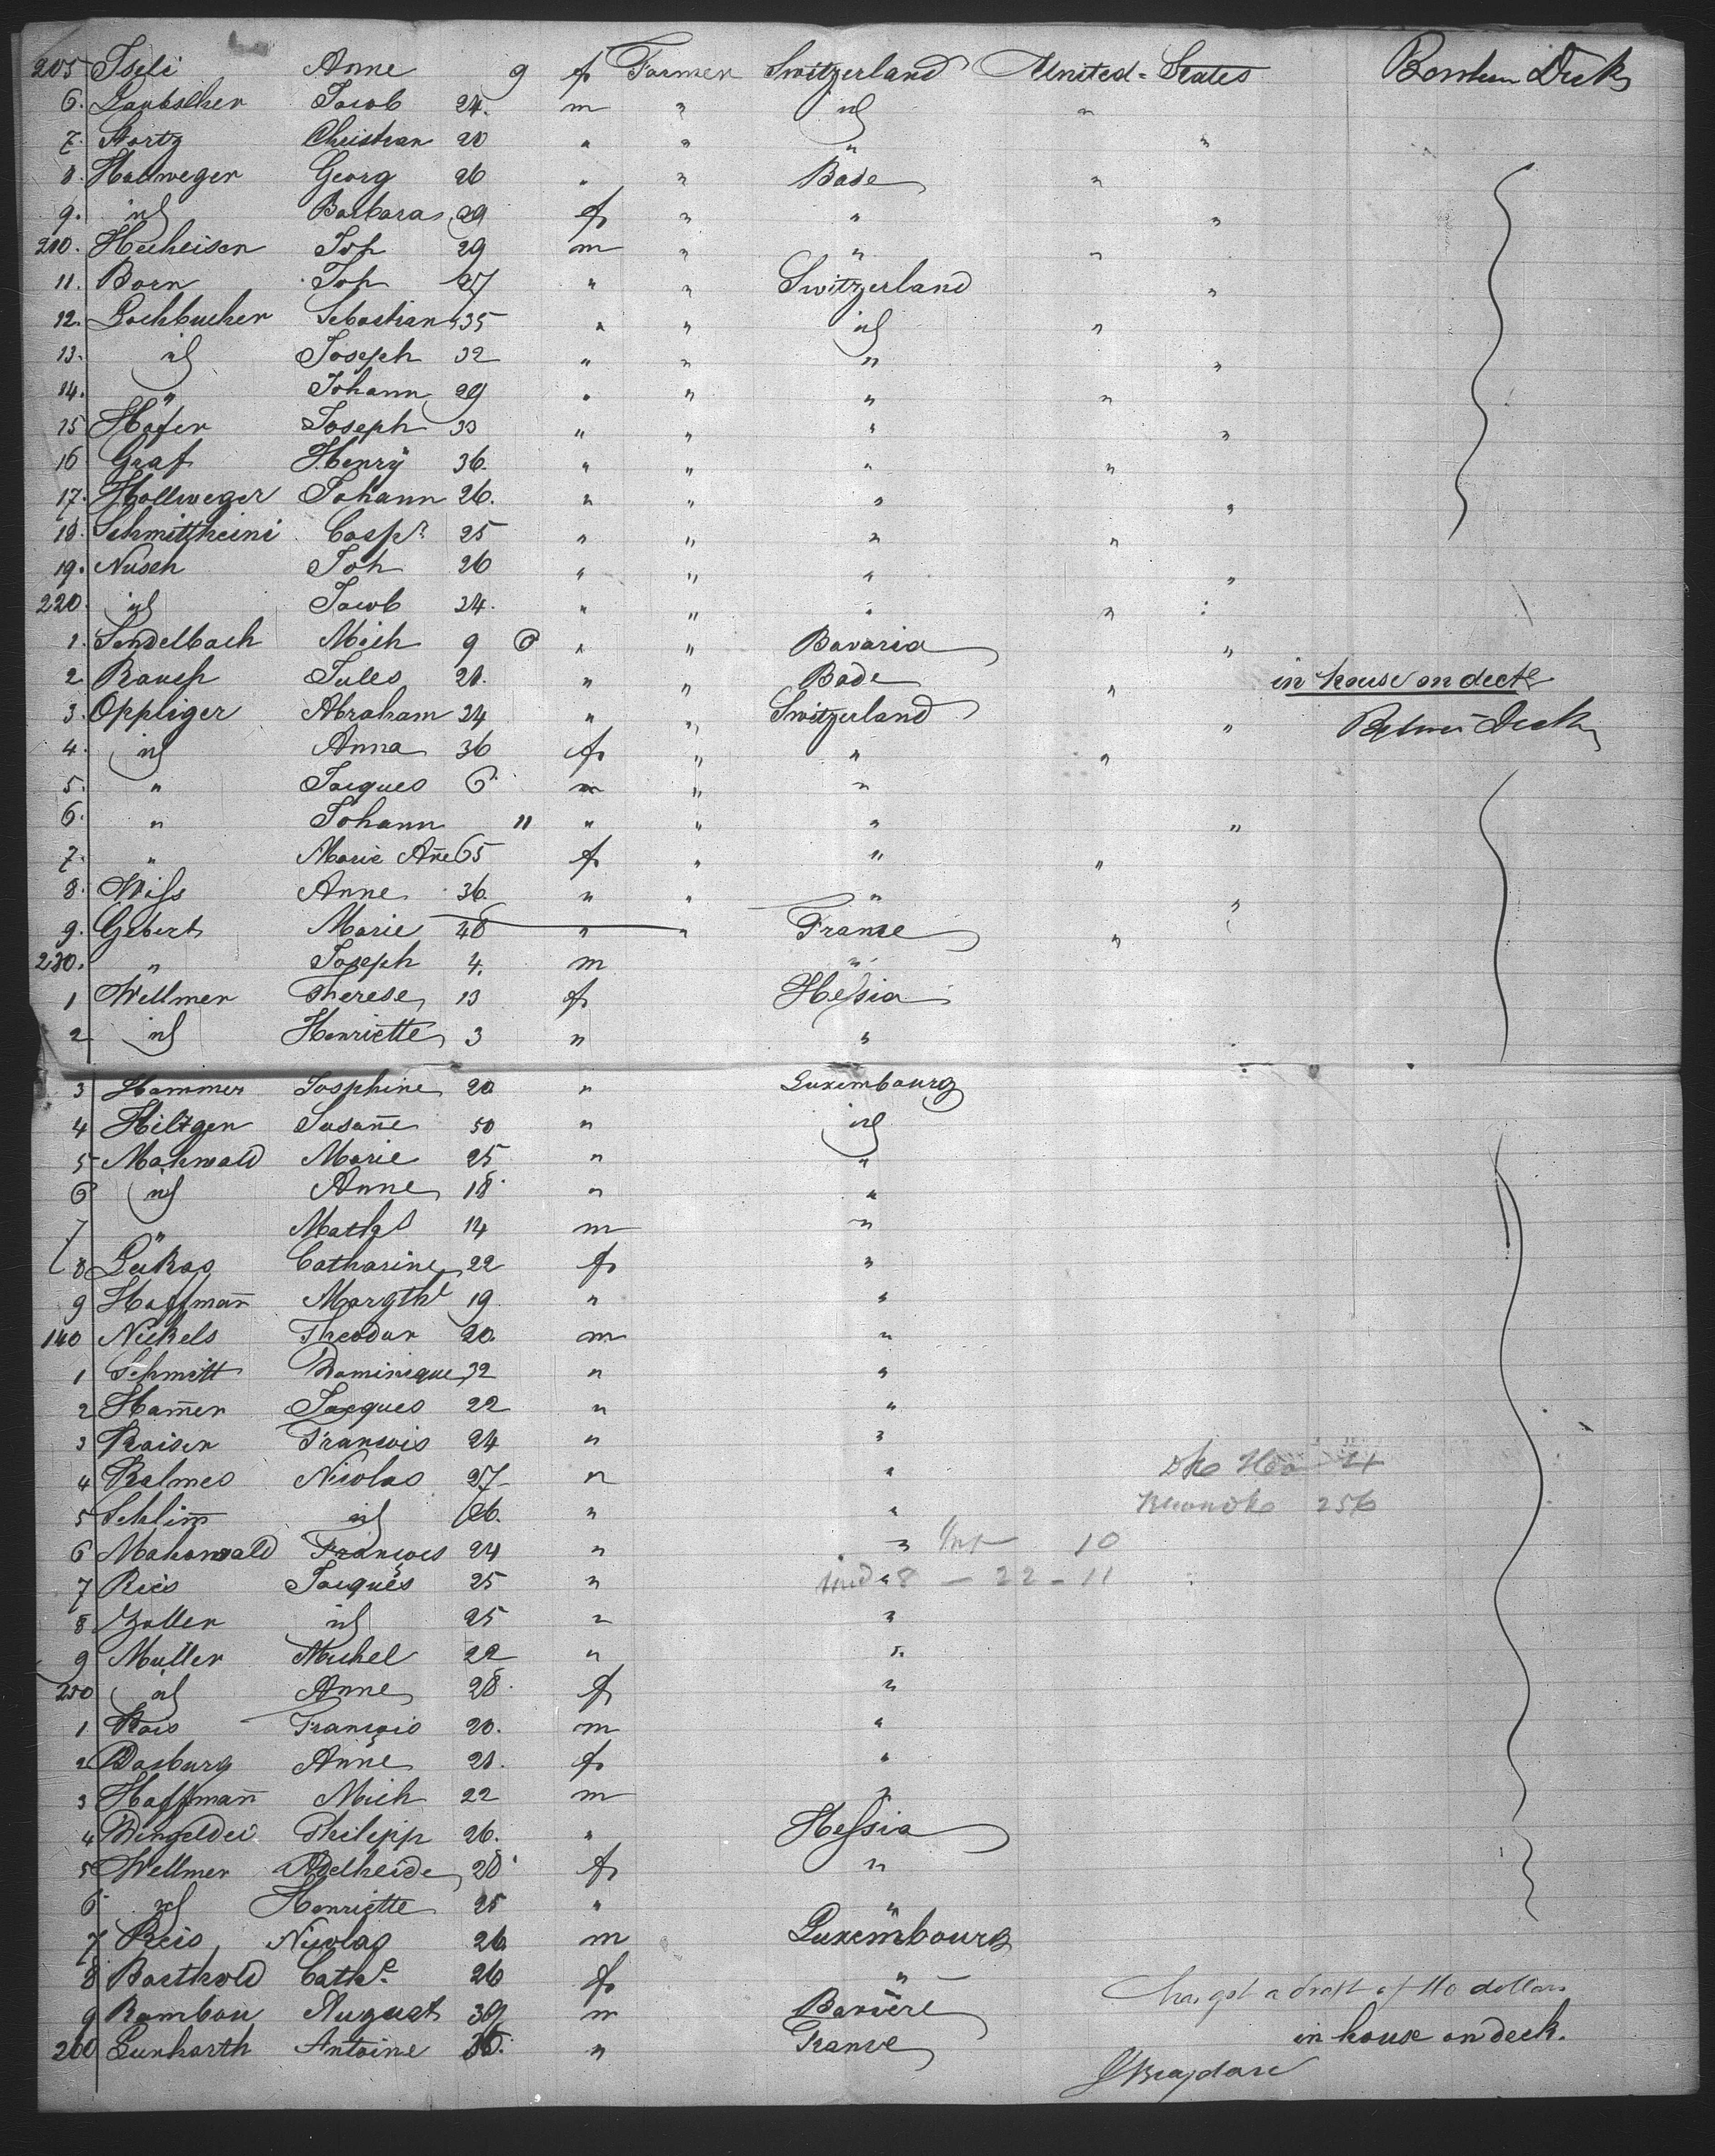 205 Iseli Anne 9 f Farmer Switzerland United-States Between Deck
6. Laubscher Jacob 24. m " id "
7. Stortz Christian 20 " " " "
8. Hallweger Georg 26 " " Bade "
9. id Barbara 29 f " " "
210. Heiheisen Joh 29 m " " "
11. Born Joh 27 " " Switzerland "
12. Lochbucher Sebastian 35 " " id "
13. id Joseph 32 " " " "
14. " Johann 29 " " " "
15 Hofer Joseph 33 " " " "
16 Graf Henry 36. " " " "
17. Hollweger Johann 26. " " " "
18. Schmittheini Casp.r 25 " " " "
19. Nüsch Joh 26 " " " "
220. id Jacob 24. " " " "
1. Sendelbach Mich 9 6 " " Bavaria "
2 Rausch Jules 21. " " Bade " in house on deck
3. Oppliger Abraham 34 " " Switzerland " Between Deck
4. id Anna 36 f " " "
5. " Jacques 6 m " "
6. " Johann 11 " " " "
7. " Marie Añe 65 f " " "
8. Wiss Anne 36. " " " "
9. Gebert Marie 48 " " France "
230. " Joseph 4. m "
1 Wellmer Therese 13 f Hessia
2 id Henriette 3 " "
3 Hammer Josphine 20 " Luxembourg
4 Hiltgen Susañe 50 " id
5 Makwald Marie 25 " "
6 id Anne 18 " "
7 " Maths 14 m "
8 Lükas Catharine 22 f "
9 Hoffmañ Margthe 19 " "
140 Nickels Theodor 20. m "
1 Schmitt Dominique 32 " "
2 Ham̄er Jacques 22 " "
3 Kaiser Francois 24 " "
4 Kalmes Nicolas 27 " "
5 Schlim̄ id 26. " "
6 Makowald François 24 " " 10
7 Ries Jacques 25 " " 8 — 22 - 11
8 Zoller id 25 " "
9 Muller Michel 22 " "
250 id Anne 28. f "
1 Kais François 20. m "
2 Dasburg Anne 21. f "
3 Hoffmañ Mich 22 m "
4 Dingeldei Philipp 26. " Hessia
5 Wellmer Adelheide 28 f "
6 id Henriette 25 " "
7 Reis Nicolas 26 m Luxembourg
8 Barthold Cathe. 26 f "
9 Rambou August 39 m Baviere has got a draft of 110 dollars
260 Lunharth Antoine 35. " France in house on deck.